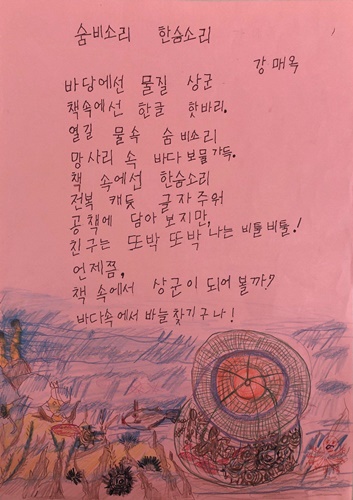 숨비소리 한숨소리
강매옥
바당에선 물질 상군
책속에선 한글 핫바리.
열길 물속 숨비소리
망사리 속 바다보물 가득.
책 속에선 한숨소리
전복 캐듯 글자 주워
공책에 담아 보지만,
친구는 또박 또박 나는 비틀비틀!
언제쯤,
책 속에서 상군이 되어 볼까?
바다속에서 바늘찾기구나!